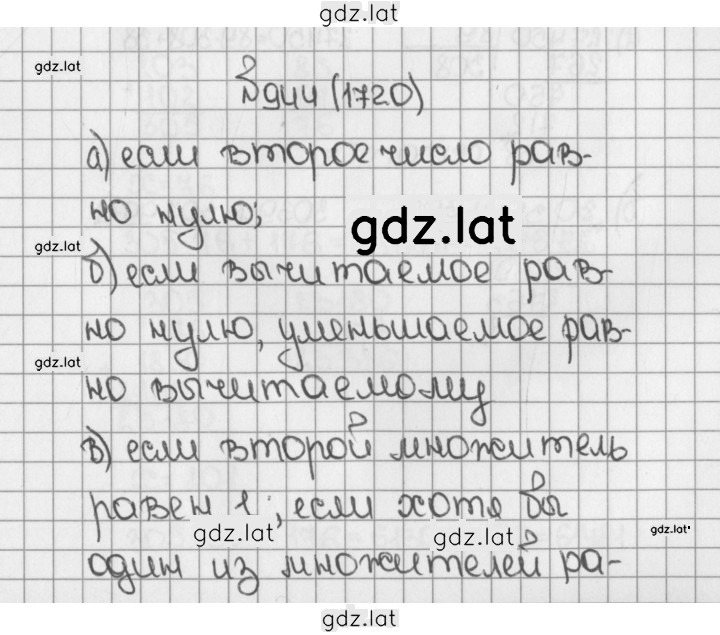 gdz.lat
gdz.lat
№944 (1720)
а) если второе число рав-
но нулю;
gdz.lat
gdz.lat
б) если вычитаемое рав-
но нулю, уменьшаемое рав-
gdz.lat
но вычитаемому
в) если второй множитель
равен 1; если хотя бы
gdz.lat
gdz.lat
gdz.lat
один из множителей ра-
gdz.lat